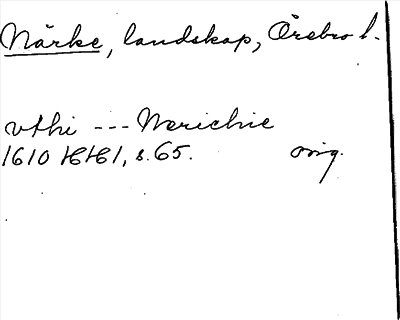 Närke, landskap, Örebro l.
vthi --- Nerichie
1610 HH1, s. 65. orig.